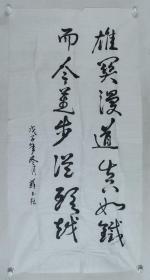 雄关漫道真如鐵
而今迈步從頭越
戊子年冬月